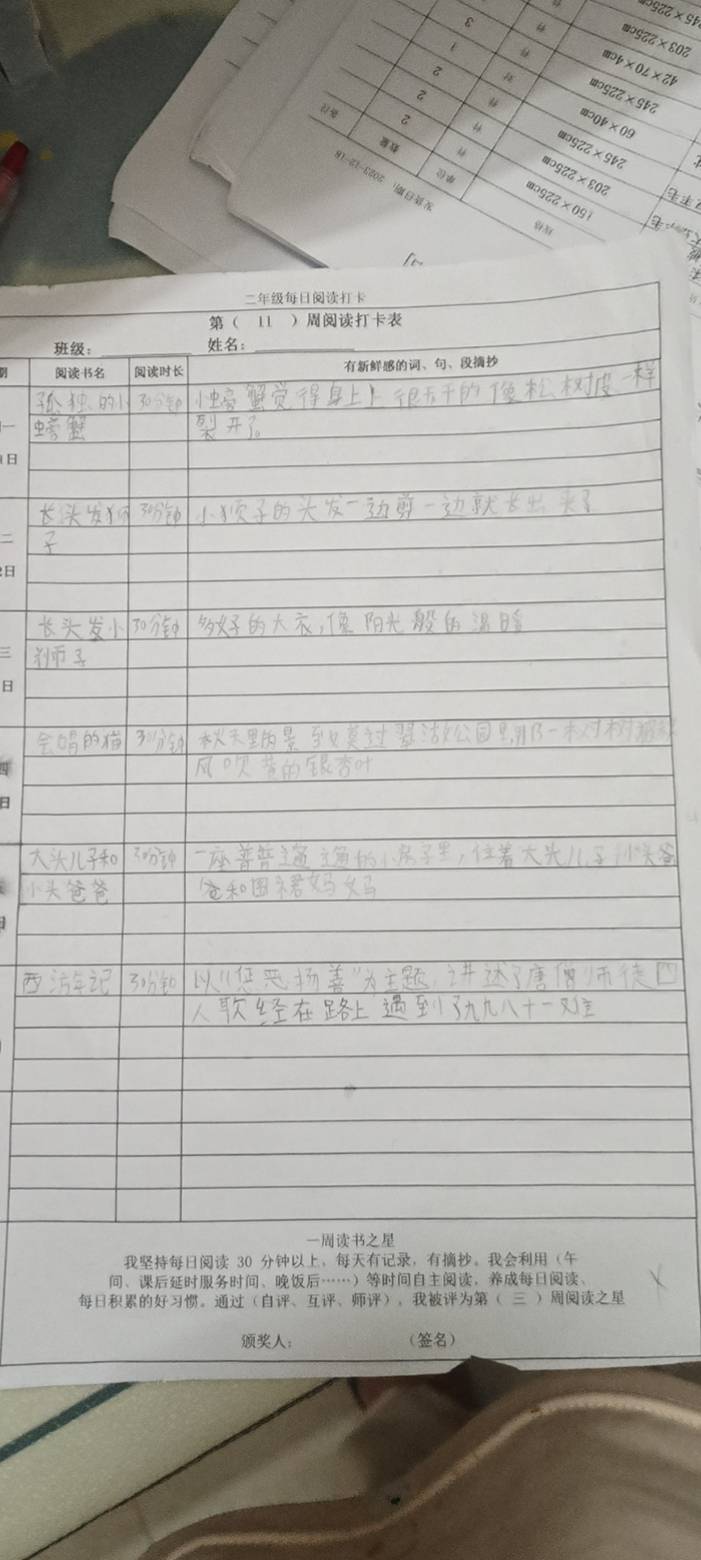 二年级每日阅读打卡
第（ 11 ）周阅读打卡表
班级： 姓名：
期 阅读书名 阅读时长 有新鲜感的词、句、段摘抄
孤独的小 30分钟 小螃蟹觉得身上 很 的像松树皮一样
一 螃蟹 裂开了。
日
长头发 30分钟 小 子的头发一边剪一边就长出来了
二 子
2日
长头发小 30分钟 的大衣，像阳光般的温暖
三 狮子
日
会唱的猫 30分钟 秋天里的景 莫过翠湖公园里那一树树
四 风吹黄的银杏叶
日
大头儿子和 30分钟 一座普普通通的小房子里，住着大头儿子 小头爸
小头爸爸 爸和围裙妈妈
西游记 30分钟 以“惩恶扬善”为主题，讲述了唐僧师徒四
人取经在路上遇到了九九八十一难
一周读书之星
我坚持每日阅读 30 分钟以上，每天有记录，有摘抄。我会利用（午
间、课后延时服务时间、晚饭后……）等时间自主阅读，养成每日阅读、
每日积累的好习惯。通过（自评、互评、师评），我被评为第（ 三 ）周阅读之星
颁奖人： （签名）
发货日期：2023-12-18
规格 单位 数量 备注
150×225cm 件 2
203×225cm 件 2
245×225cm 件 2
60×40cm 对 1
245×225cm 件 3
42×70×4cm
203×225cm
245×225cm